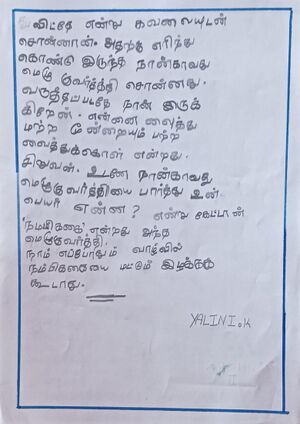 விட்டதே என்று கவலையுடன்
சொன்னான். அதற்கு எரிந்து
கொண்டு இருந்த நான்காவது
மெழுகுவர்த்தி சொன்னது.
வருத்தப்படாதே நான் இருக்
கிறேன். என்னை வைத்து
மற்ற மூன்றையும் பற்ற
வைத்துக்கொள் என்றது.
சிறுவன். உடனே நான்காவது
மெழுகுவர்த்தியை பார்த்து உன்
பெயர் என்ன? என்று கேட்டான்
நம்பிக்கை என்றது அந்த
மெழுகுவர்த்தி.
நாம் எப்போதும் வாழ்வில்
நம்பிக்கையை மட்டும் இழக்கக்
கூடாது.
YALINI.K